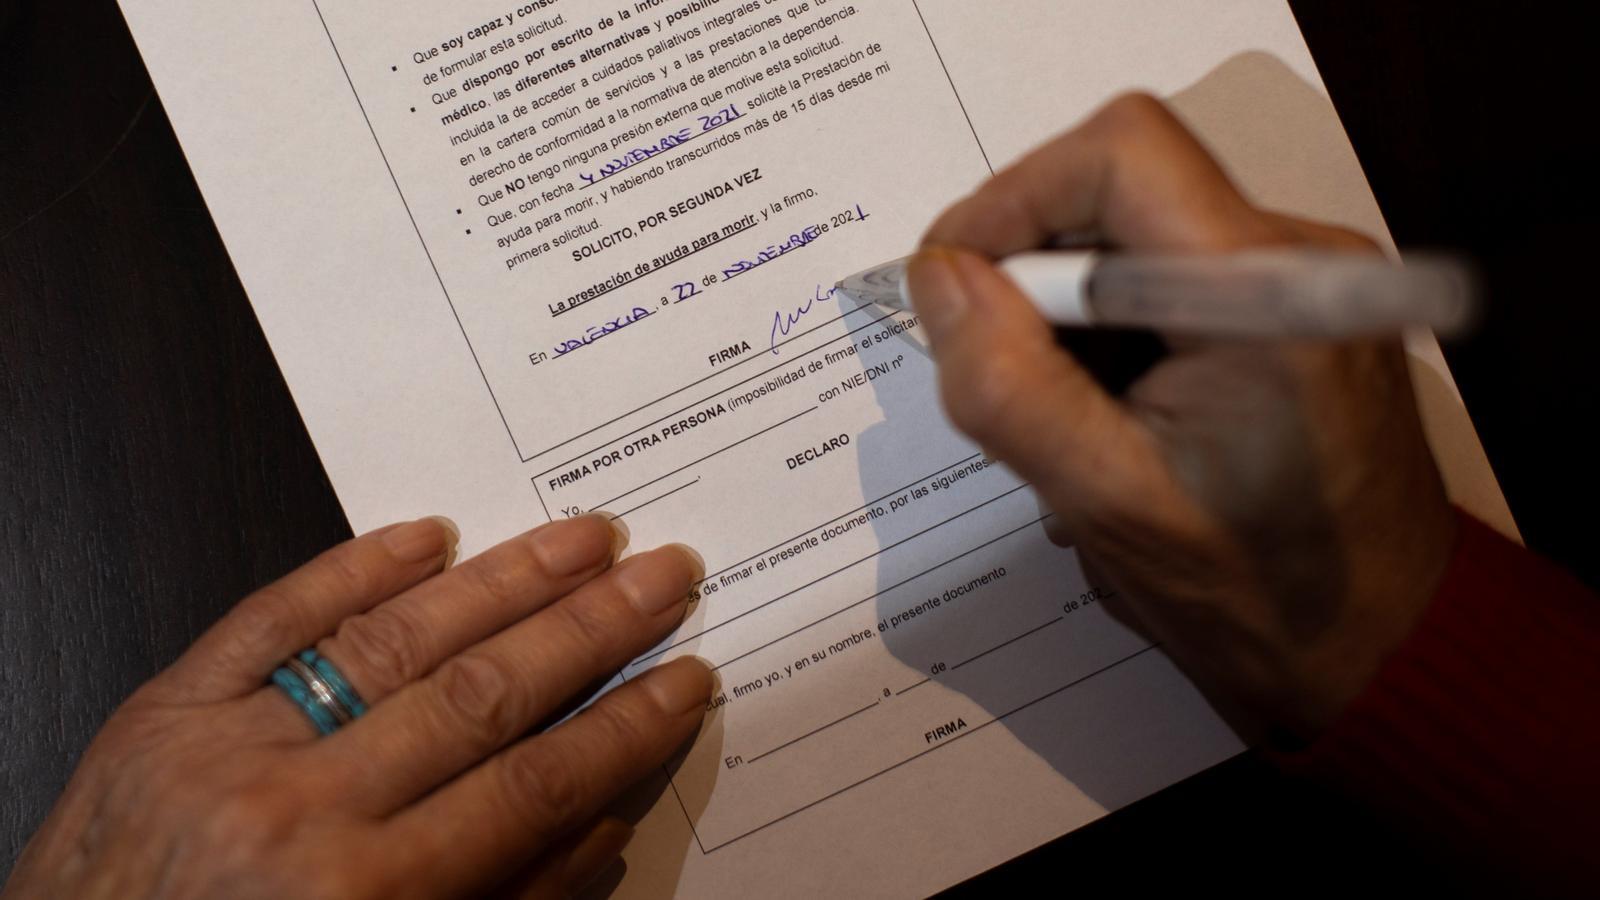 Que soy capaz y
de formular esta solicitud.
Que dispongo por escrito de la
médico, las diferentes alternativas y
incluida la de acceder a cuidados paliativos integrales
en la cartera común de servicios y a las prestaciones que
derecho de conformidad a la normativa de atención a la dependencia.
Que NO tengo ninguna presión externa que motive esta solicitud.
Que, con fecha 4 NOVIEMBRE 2021 solicité la Prestación de
ayuda para morir, y habiendo transcurridos más de 15 días desde mi
primera solicitud.
SOLICITO, POR SEGUNDA VEZ
La prestación de ayuda para morir, y la firmo,
En VALENCIA, a 22 de NOVIEMBRE de 2021
FIRMA
FIRMA POR OTRA PERSONA (imposibilidad de firmar el
Yo, con NIE/DNI nº
DECLARO
de firmar el presente documento, por las siguientes
firmo yo, y en su nombre, el presente documento
En , a de de 202
FIRMA